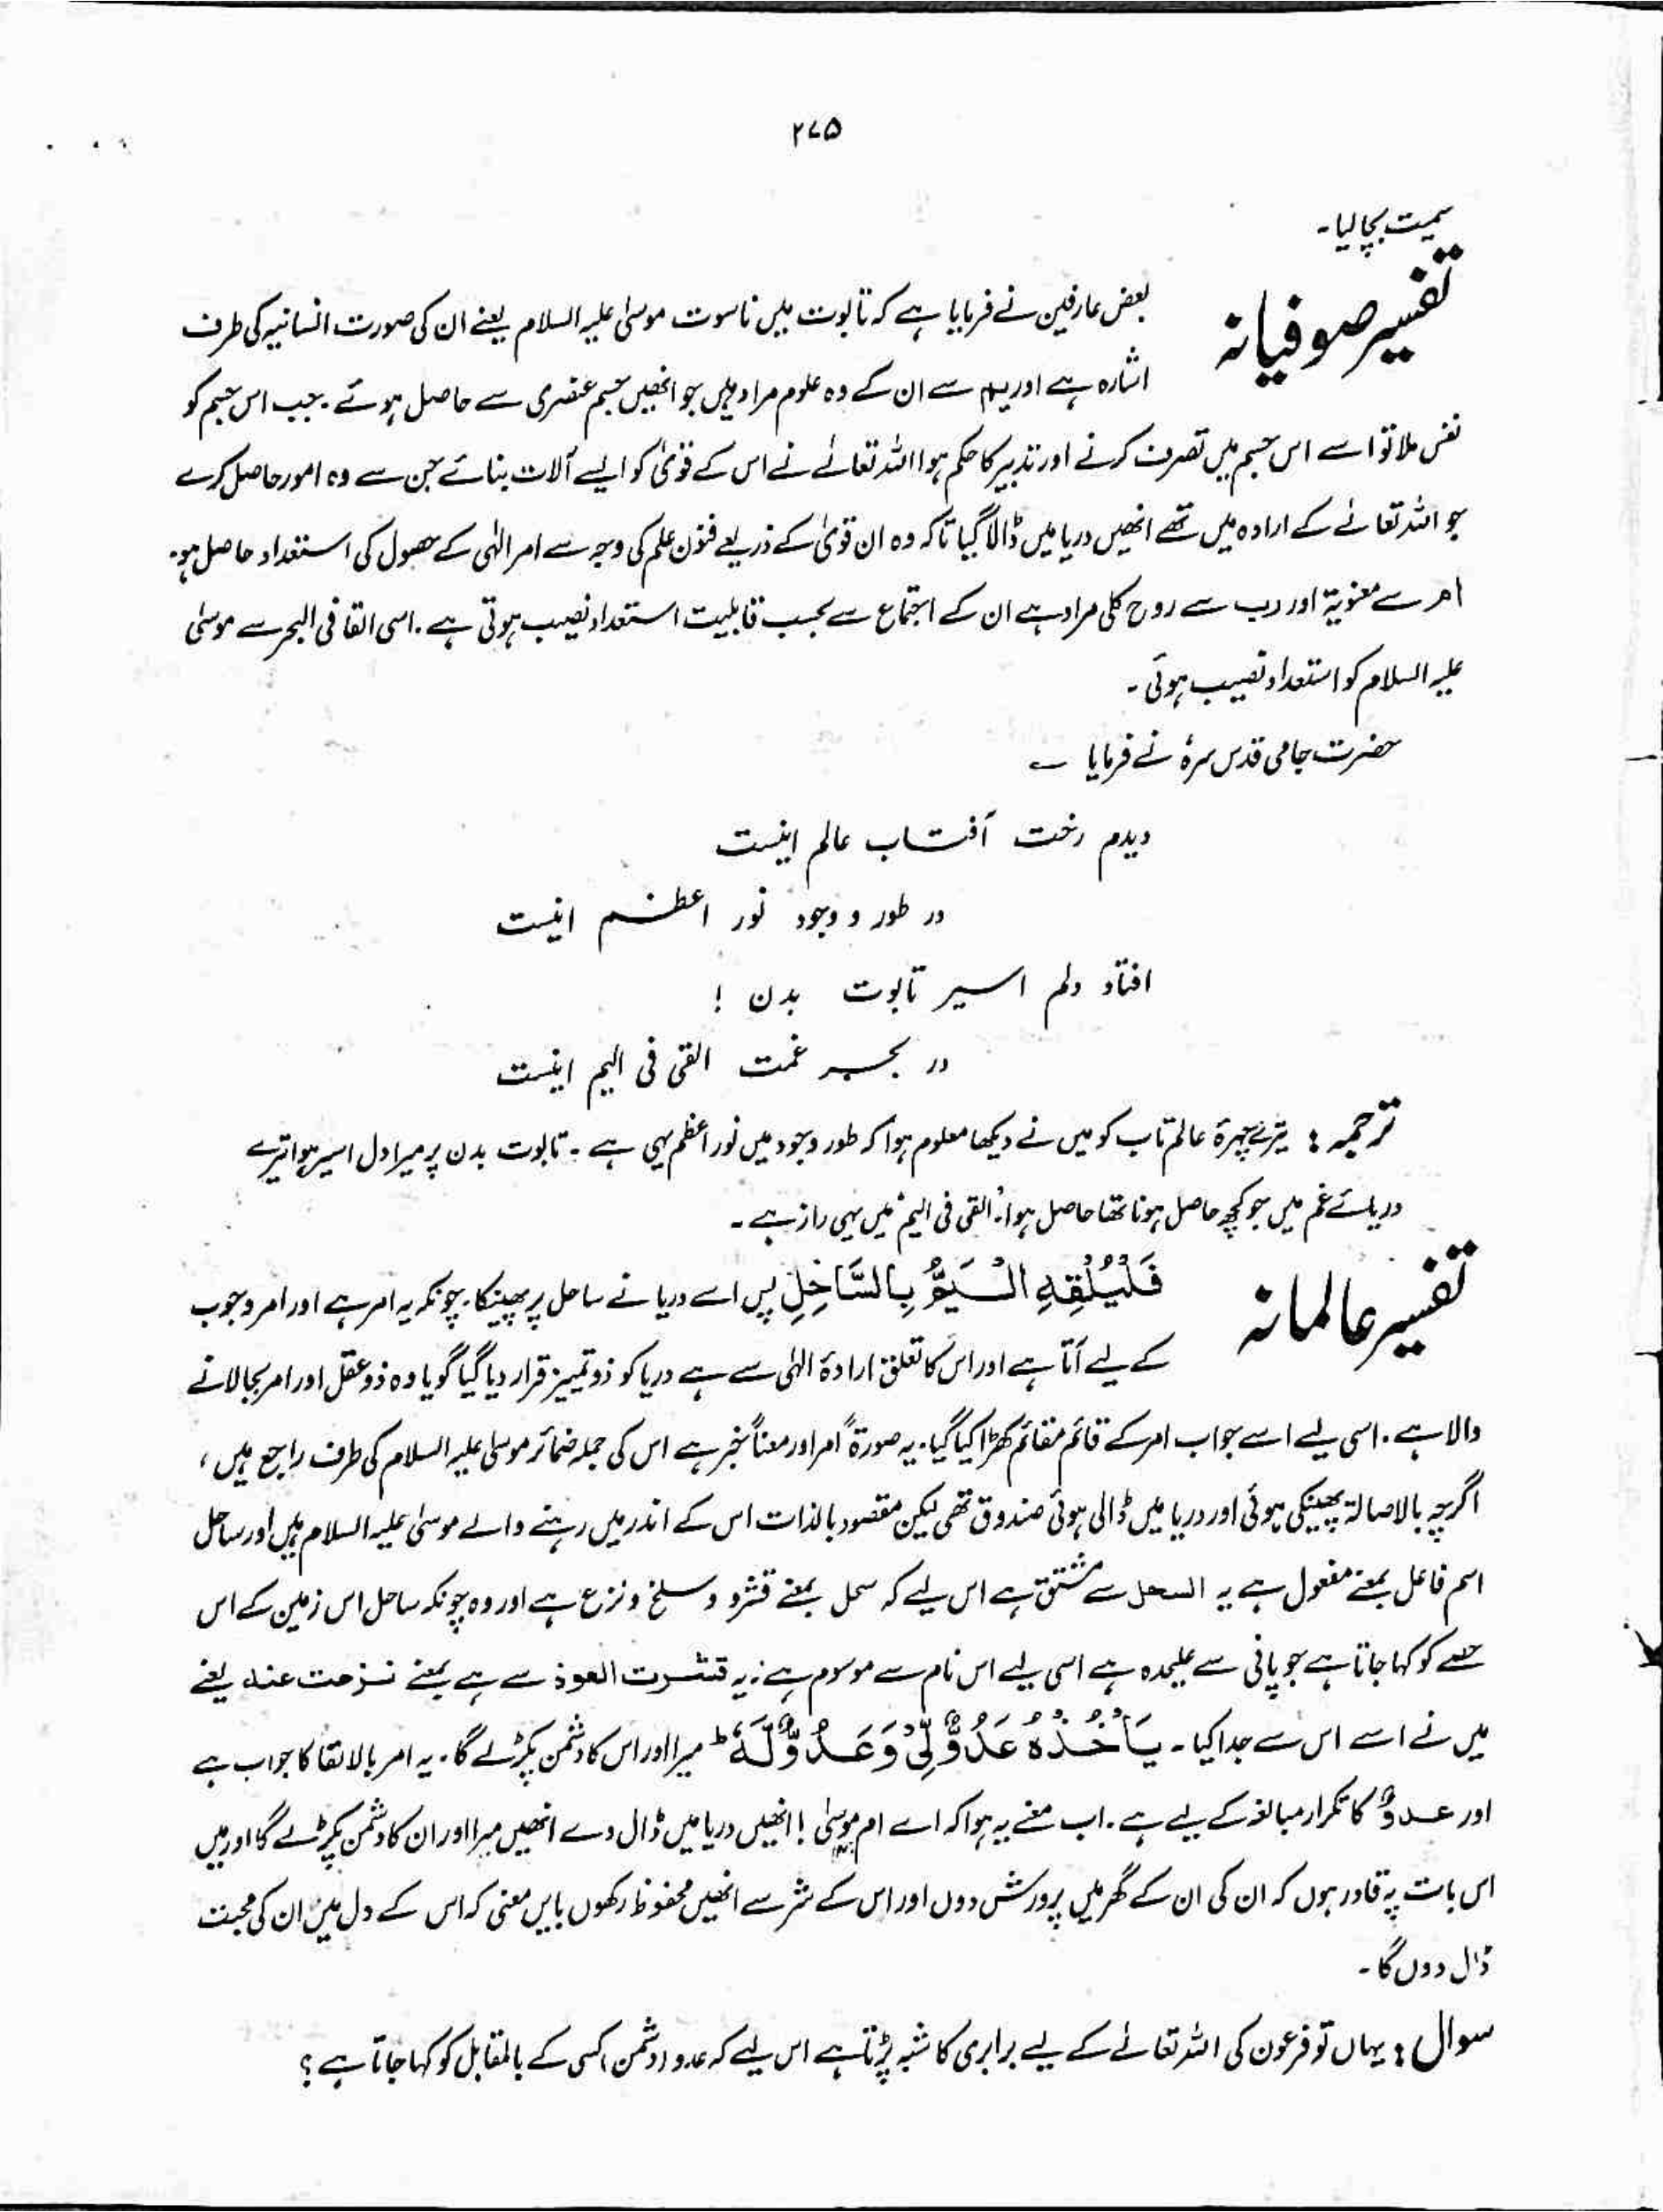 ۲۷۵
سمیت بچا لیا۔
تفسیر صوفیانہ
بعض عارفین نے فرمایا ہے کہ تابوت میں ناسوت موسیٰ علیہ السلام یعنے ان کی صورت انسانیہ کی طرف
اشارہ ہے اور یم سے ان کے وہ علوم مراد ہیں جو انھیں جسم عنصری سے حاصل ہوئے۔ جب اس جسم کو
نفس ملا تو اسے اس جسم میں تصرف کرنے اور تدبیر کا حکم ہوا اللہ تعالےٰ نے اس کے قویٰ کو ایسے آلات بنائے جن سے وہ امور حاصل کرے
جو اللہ تعالےٰ کے ارادہ میں تھے انھیں دریا میں ڈالا گیا تاکہ وہ ان قویٰ کے ذریعے فنون علم کی وجہ سے امر الٰہی کے حصول کی استعداد حاصل ہو۔
ام سے معنویۃ اور رب سے روح کلی مراد ہے ان کے اجتماع سے بحسب قابلیت استعداد نصیب ہوتی ہے۔ اسی القا فی البحر سے موسیٰ
علیہ السلام کو استعداد نصیب ہوئی۔
حضرت جامی قدس سرہٗ نے فرمایا ؎
دیدم رخت آفتاب عالم اینست
در طور و وجود نور اعظم اینست
افتاد دلم اسیر تابوت بدن !
در بحر غمت القی فی الیم اینست
ترجمہ : تیرے چہرۂ عالم تاب کو میں نے دیکھا معلوم ہوا کہ طور وجود میں نور اعظم یہی ہے۔ تابوت بدن پر میرا دل اسیر ہوا تیرے
دریائے غم میں جو کچھ حاصل ہونا تھا حاصل ہوا۔ القی فی الیم میں یہی راز ہے۔
تفسیر عالمانہ
فَلْیُلْقِهِ الْیَمُّ بِالسَّاحِلِ پس اسے دریا نے ساحل پر پھینکا۔ چونکہ یہ امر ہے اور امر وجوب
کے لیے آتا ہے اور اس کا تعلق ارادۂ الٰہی سے ہے دریا کو ذو تمییز قرار دیا گیا گویا وہ ذو عقل اور امر بجا لانے
والا ہے۔ اسی لیے اسے جواب امر کے قائم مقائم کھڑا کیا گیا۔ یہ صورۃً امر اور معناً خبر ہے اس کی جملہ ضمائر موسیٰ علیہ السلام کی طرف راجع ہیں،
اگرچہ بالاصالۃ پھینکی ہوئی اور دریا میں ڈالی ہوئی صندوق تھی لیکن مقصود بالذات اس کے اندر میں رہنے والے موسیٰ علیہ السلام ہیں اور ساحل
اسم فاعل بمعنے مفعول ہے یہ السحل سے مشتق ہے اس لیے کہ سحل بمعنے قشرو و سلخ و نزع ہے اور وہ چونکہ ساحل اس زمین کے اس
حصے کو کہا جاتا ہے جو پانی سے علیحدہ ہے اسی لیے اس نام سے موسوم ہے: یہ قشرت العوذ سے ہے بمعنے نزحت عنہ یعنے
میں نے اسے اس سے جدا کیا۔ یَاْخُذْهُ عَدُوٌّ لِّیْ وَعَدُوٌّ لَّهٗ ؕ میرا اور اس کا دشمن پکڑ لے گا۔ یہ امر بالالقا کا جواب ہے
اور عدوٌّ کا تکرار مبالغہ کے لیے ہے۔ اب معنے یہ ہوا کہ اے ام موسیٰ ! انھیں دریا میں ڈال دے انھیں میرا اور ان کا دشمن پکڑ لے گا اور میں
اس بات پہ قادر ہوں کہ ان کی ان کے گھر میں پرورش دوں اور اس کے شر سے انھیں محفوظ رکھوں بایں معنی کہ اس کے دل میں ان کی محبت
ڈال دوں گا۔
سوال : یہاں تو فرعون کی اللہ تعالےٰ کے لیے برابری کا شبہ پڑتا ہے اس لیے کہ عدو (دشمن) کسی کے بالمقابل کو کہا جاتا ہے ؟